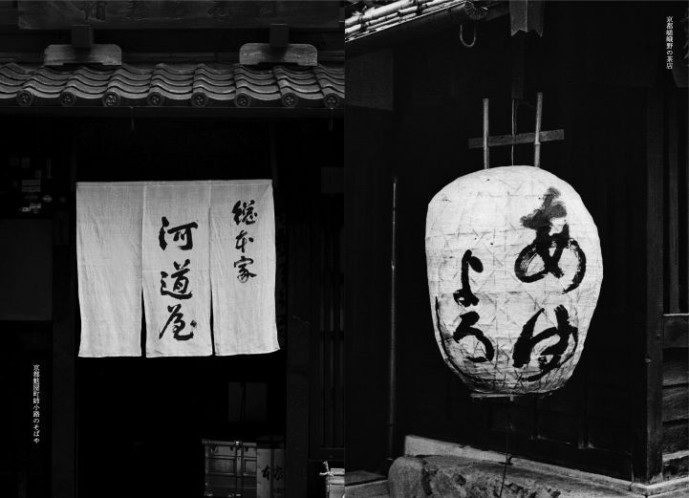 総本家
河道屋
京都麩屋町姉小路のそばや
京都嵯峨野の茶店
あゆ
よろ